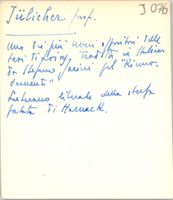 Jülicher prof.
J 076
Uno dei più severi oppositori delle
tesi di Loisy, tradotto in italiano
da Stefano Jacini pel "Rinno-
vamento"
Luterano liberale della stessa
di Harnack